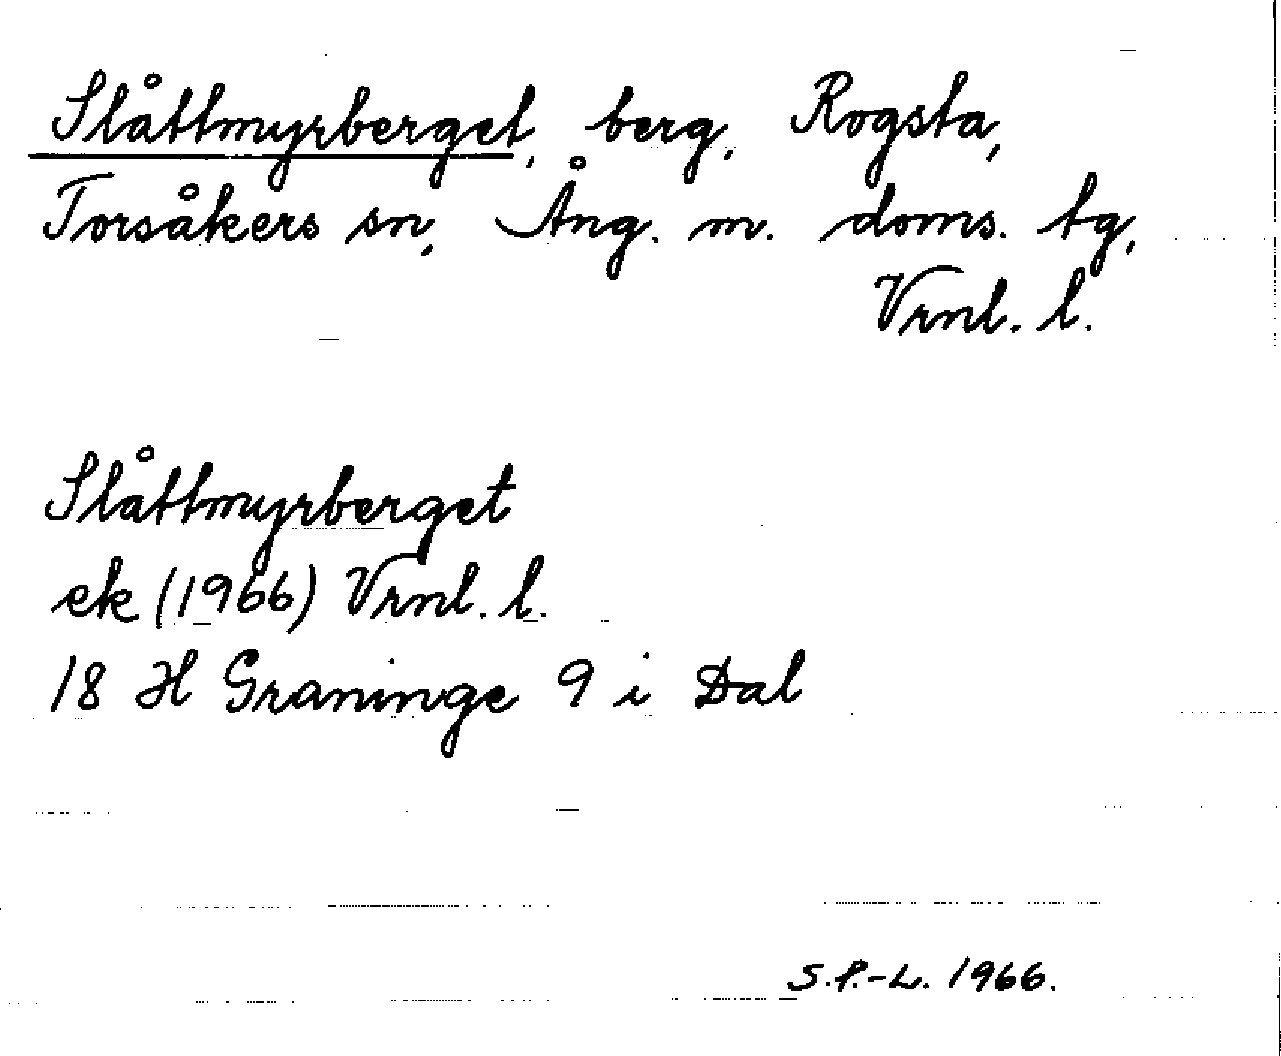 Slåttmyrberget, berg, Rogsta,
Torsåkers sn, Ång. m. doms. tg,
Vrnl. l.
Slåttmyrberget
ek (1966) Vrnl. l.
18 H Graninge 9 i Dal
S.P.-L. 1966.